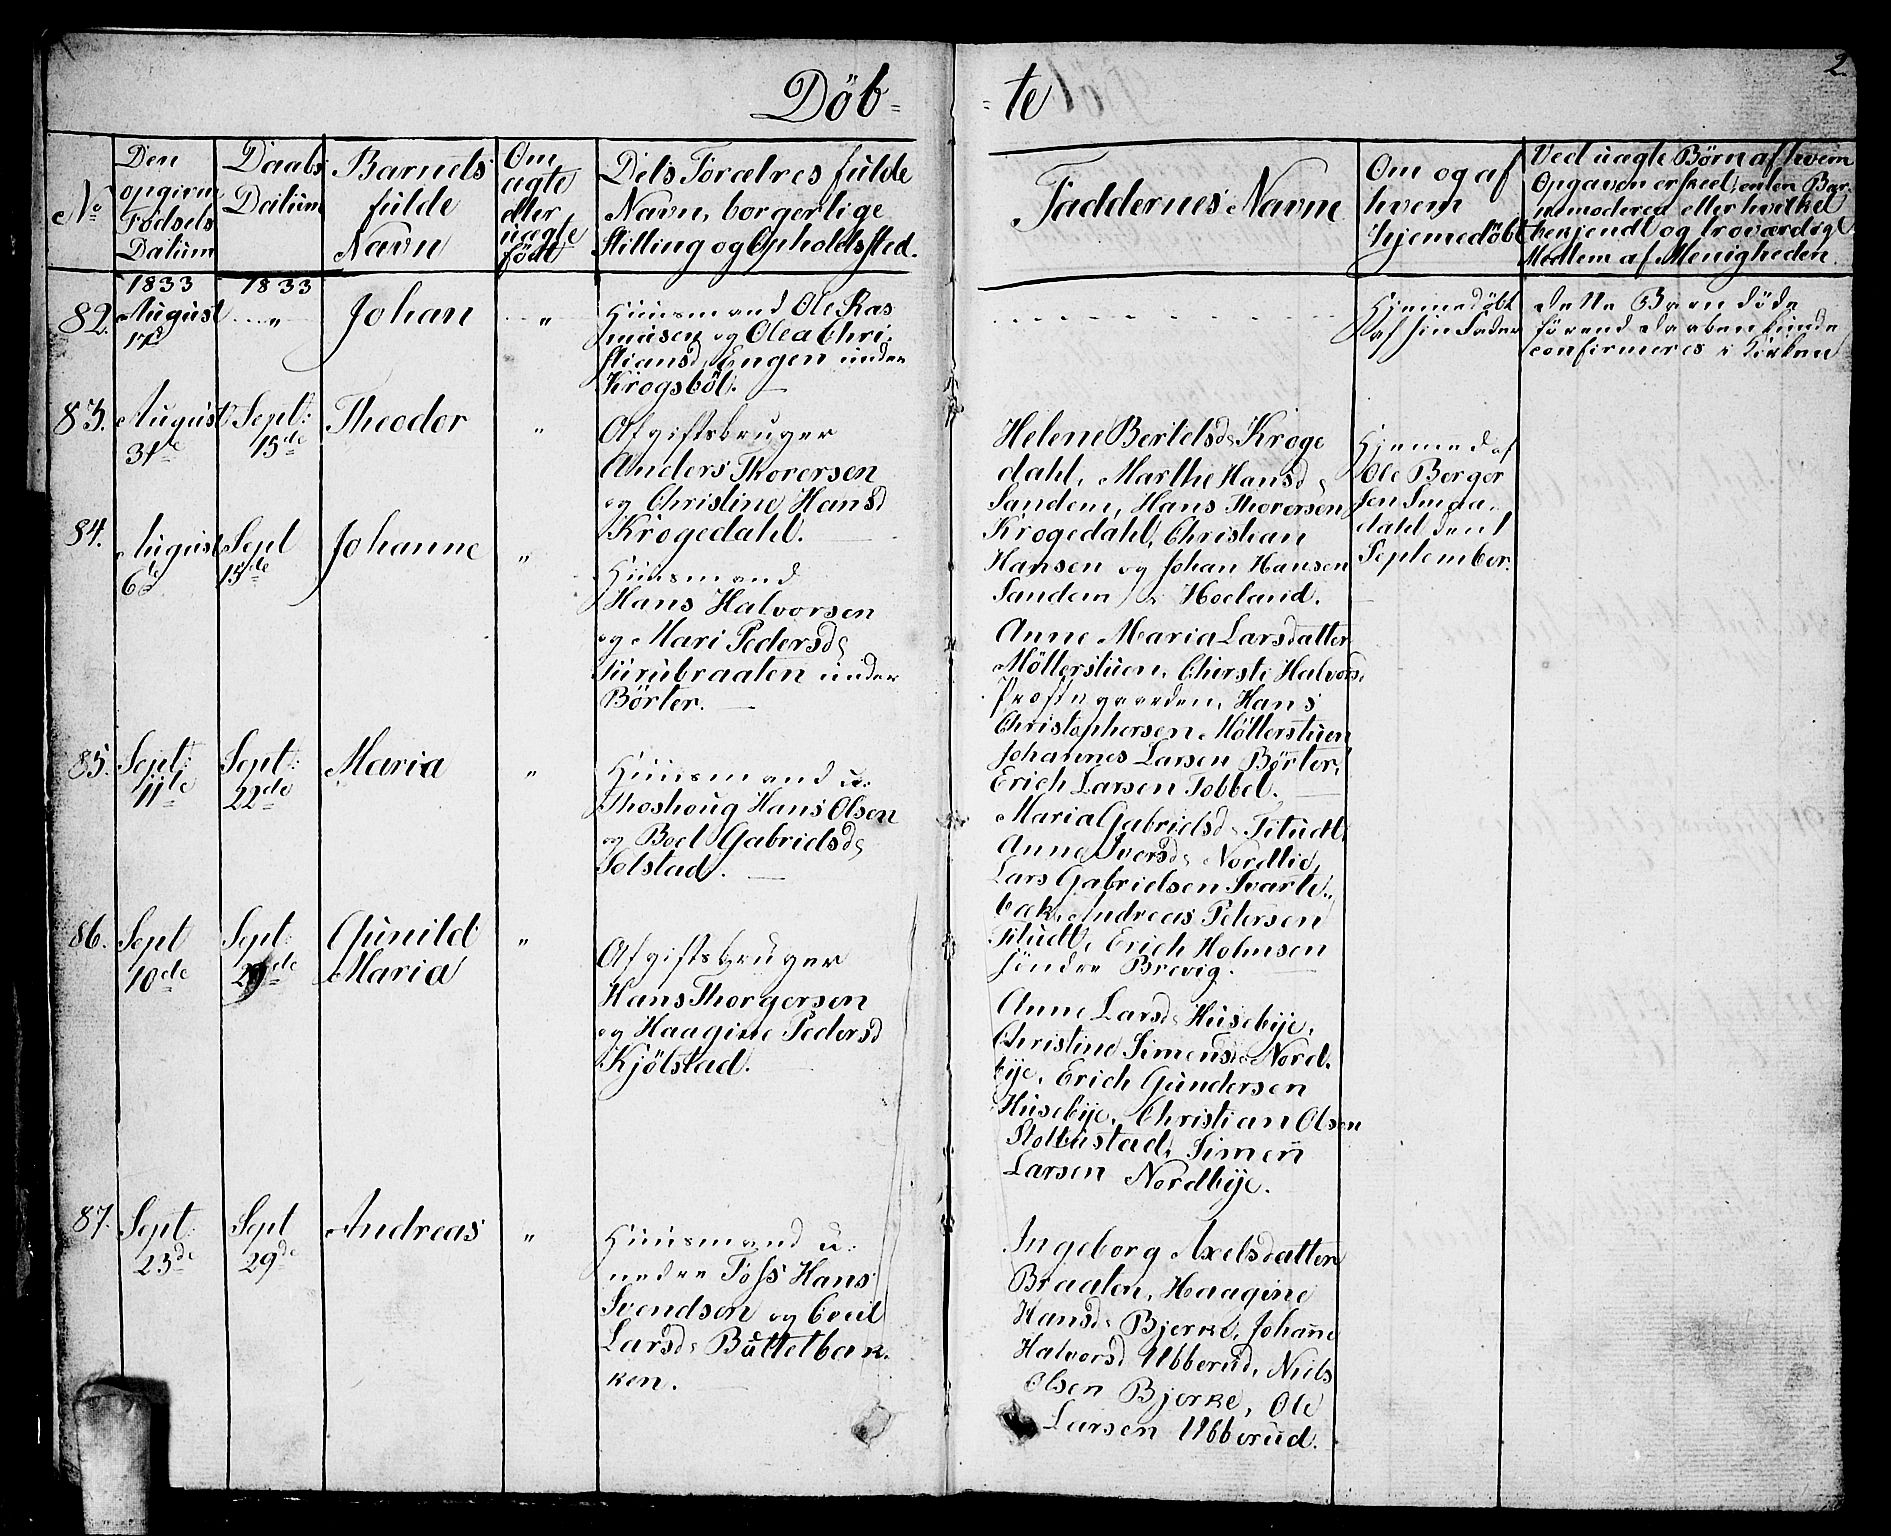 2.
Döb-
-te
No
Den
opgivne
Fødsels
Datum
Daabs
Datum
Barnets
fulde
Navn
Om
ægte
eller
uægte
født
Dets Forældres fulde
Navn, borgerlige
Stilling og Opholdssted.
Faddernes Navne
Om og af
hvem
hjemedöbt
Ved uægte Børn af hvem
Opgaven er skeet, enten Bar-
nemoderen eller hvilket
bekjendt og troværdigt
Medlem af Menigheden.
1833
1833
82.
August
17d
"
Johan
"
Huusmand Ole Ras
musen og Olea Chri
stiansd Engen under
Krogsböl.
Hjemmedöbt
af sin Fader
dette Barn döde
förend Daaben kunde
confirmeres i Kirken
83.
August
31te
Sept:
15de
Theodor
"
Afgiftsbruger
Anders Thorersen
og Christine Hansd
Krogedahl.
Helene Bertelsd. Kroge
dahl, Marthe Hansd
Sandem, Hans Thorersen
Krogedahl, Christian
Hansen og Johan Hansen
Sandem i Hoeland.
Hjemmed af
Ole Berger
sen Smaa-
dahl den 1
September.
84.
August
6d
Sept
15de
Johanne
"
Huusmand
Hans Halvorsen
og Mari Pedersd
Furubraaten under
Börter.
Anne Maria Larsdatter
Möllerstuen, Chirsti Halvorsd
Præstegaarden, Hans
Christophersen Möllerstuen
Johannes Larsen Börter,
Erich Larsen Tobbel.
85.
Sept:
11te
Sept:
22de
Maria
"
Huusmand u.
Thoshoug Hans Olsen
og Boel Gabrielsd
Solstad.
Maria Gabrielsd. Titudt,
Anne Iversd. Nordlie,
Lars Gabrielsen Svarte-
bæk, Andreas Petersen
Titudt, Erich Holmsen
söndre Brevig.
86.
Sept
10de
Sept:
29de
Gunild
Maria
"
Afgiftsbruger
Hans Thorgersen
og Haagine Pedersd
Kjölstad.
Anne Larsd. Husebye,
Christine Simensd. Nord-
bye, Erich Gundersen
Husebye, Christian Olsen
Stottustad, Simen
Larsen Nordbye.
87.
Sept:
23de
Sept
29de
Andreas
"
Huusmand u.
nedre Toss Hans
Svendsen og Eveil
Larsd. Büttelbak-
ken.
Ingeborg Axelsdatter
Braaten, Haagine
Hansd. Bjerke, Johanne
Halvorsd Ubberud, Niels
Olsen Bjerke, Ole
Larsen Ubberud.